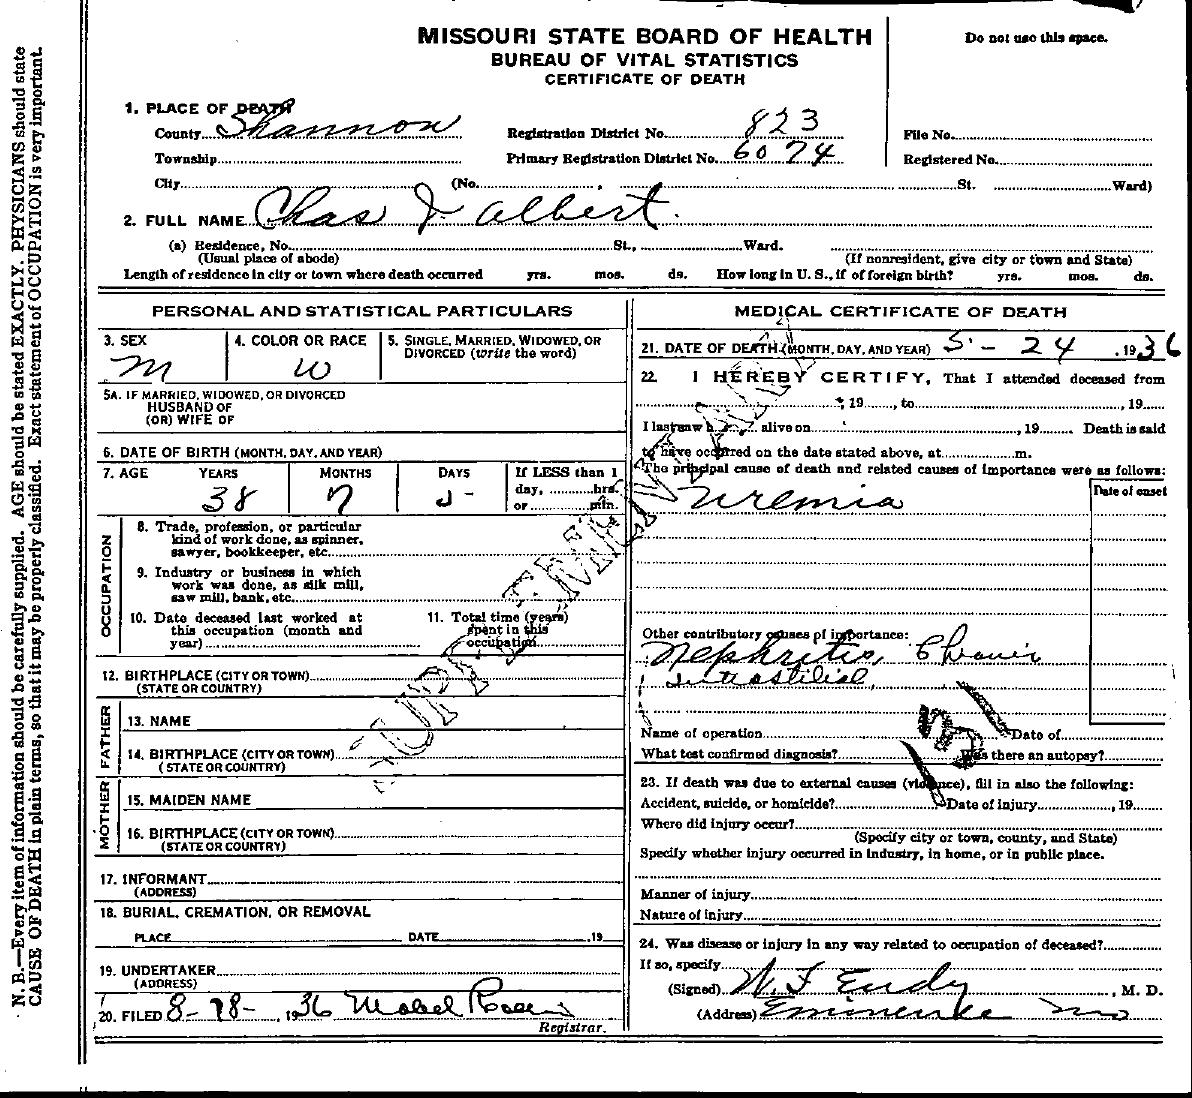 MISSOURI STATE BOARD OF HEALTH
BUREAU OF VITAL STATISTICS
CERTIFICATE OF DEATH
Do not use this space.
1. PLACE OF DEATH
County Shannon Registration District No. 823 File No.
Township Primary Registration District No. 6074 Registered No.
City (No. , St. Ward)
2. FULL NAME Chas J. Albert.
(a) Residence, No. St., Ward.
(Usual place of abode) (If nonresident, give city or town and State)
Length of residence in city or town where death occurred yrs. mos. ds. How long in U. S., if of foreign birth? yrs. mos. ds.
PERSONAL AND STATISTICAL PARTICULARS
3. SEX 4. COLOR OR RACE 5. SINGLE, MARRIED, WIDOWED, OR
DIVORCED (write the word)
M W
5A. IF MARRIED, WIDOWED, OR DIVORCED
HUSBAND OF
(OR) WIFE OF
6. DATE OF BIRTH (MONTH, DAY, AND YEAR)
7. AGE YEARS MONTHS DAYS If LESS than 1
day, hrs.
or min.
38 7
OCCUPATION
8. Trade, profession, or particular
kind of work done, as spinner,
sawyer, bookkeeper, etc.
9. Industry or business in which
work was done, as silk mill,
saw mill, bank, etc.
10. Date deceased last worked at
this occupation (month and
year)
11. Total time (years)
spent in this
occupation
12. BIRTHPLACE (CITY OR TOWN)
(STATE OR COUNTRY)
FATHER
13. NAME
14. BIRTHPLACE (CITY OR TOWN)
(STATE OR COUNTRY)
MOTHER
15. MAIDEN NAME
16. BIRTHPLACE (CITY OR TOWN)
(STATE OR COUNTRY)
17. INFORMANT
(ADDRESS)
18. BURIAL, CREMATION, OR REMOVAL
PLACE DATE 19
19. UNDERTAKER
(ADDRESS)
20. FILED 8-28-, 1936 Mabel
Registrar.
MEDICAL CERTIFICATE OF DEATH
21. DATE OF DEATH (MONTH, DAY, AND YEAR) 5-24, 1936
22. I HEREBY CERTIFY, That I attended deceased from
, 19 , to , 19
I last saw h alive on , 19 Death is said
to have occurred on the date stated above, at m.
The principal cause of death and related causes of importance were as follows:
Date of onset
Uremia
Other contributory causes of importance:
Nephritis, Chronic
intrastitial,
Name of operation Date of
What test confirmed diagnosis? Was there an autopsy?
23. If death was due to external causes (violence), fill in also the following:
Accident, suicide, or homicide? Date of injury , 19
Where did injury occur?
(Specify city or town, county, and State)
Specify whether injury occurred in industry, in home, or in public place.
Manner of injury
Nature of injury
24. Was disease or injury in any way related to occupation of deceased?
If so, specify
(Signed) W. F. Eudy , M. D.
(Address) Eminence Mo
SUPPLEMENTARY
N. B.—Every item of information should be carefully supplied. AGE should be stated EXACTLY. PHYSICIANS should state
CAUSE OF DEATH in plain terms, so that it may be properly classified. Exact statement of OCCUPATION is very important.